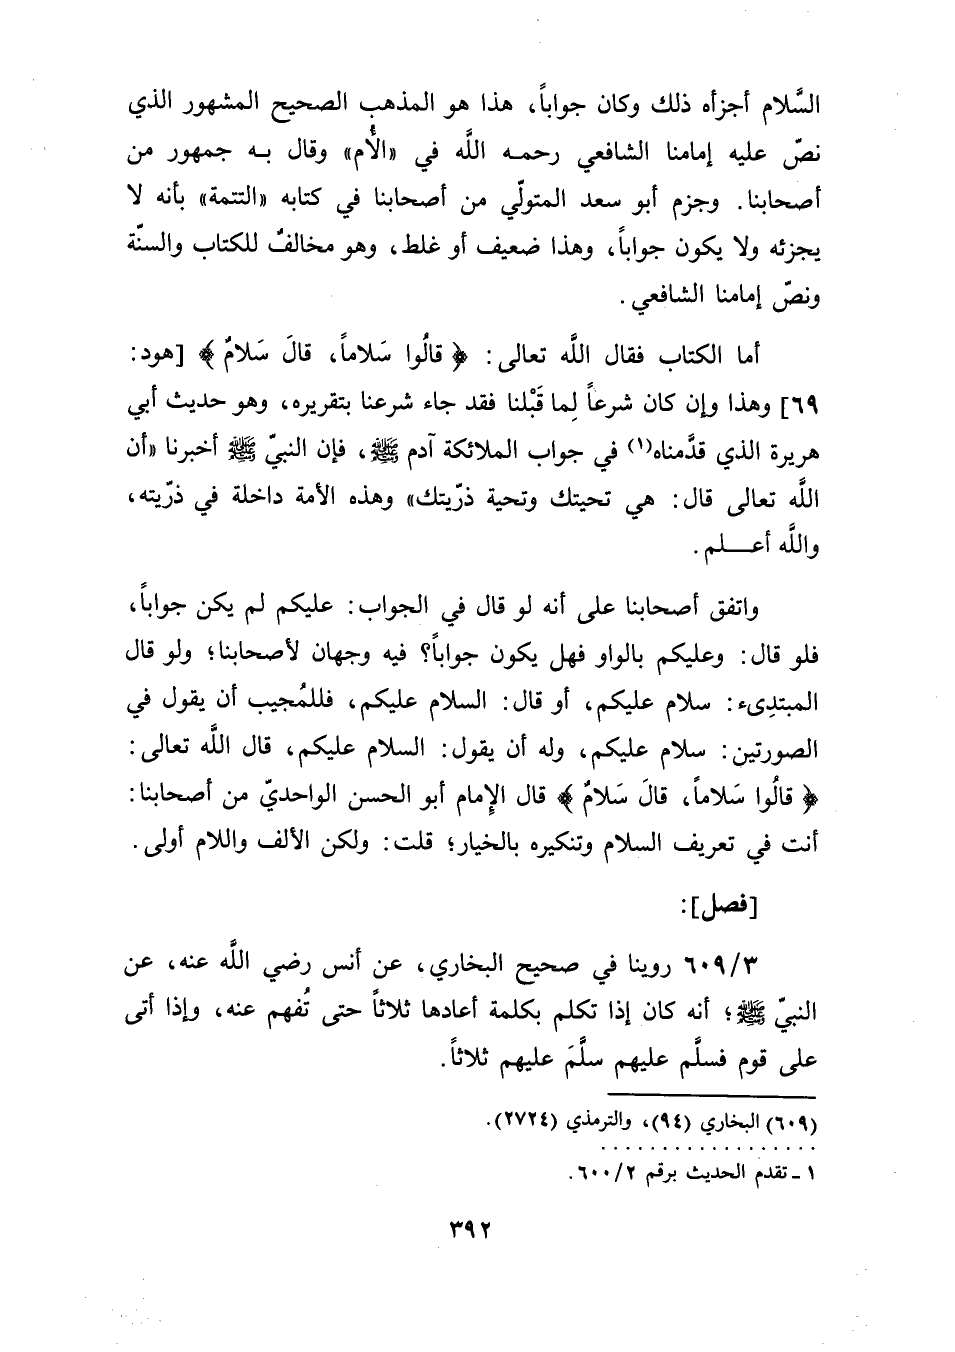 السَّلام أجزأه ذلك وكان جواباً، هذا هو المذهب الصحيح المشهور الذي
نصّ عليه إمامنا الشافعي رحمه اللَّه في «الأُم» وقال به جمهور من
أصحابنا. وجزم أبو سعد المتولّي من أصحابنا في كتابه «التتمة» بأنه لا
يجزئه ولا يكون جواباً، وهذا ضعيف أو غلط، وهو مخالفٌ للكتاب والسنّة
ونصّ إمامنا الشافعي.
أما الكتاب فقال اللَّه تعالى: ﴿قالُوا سَلاماً، قالَ سَلامٌ﴾ [هود:
٦٩] وهذا وإن كان شرعاً لِما قَبْلنا فقد جاء شرعنا بتقريره، وهو حديث أبي
هريرة الذي قدَّمناه(١) في جواب الملائكة آدم ﷺ، فإن النبيّ ﷺ أخبرنا «أن
اللَّه تعالى قال: هي تحيتك وتحية ذرّيتك» وهذه الأمة داخلة في ذرّيته،
واللَّه أعــلم.
واتفق أصحابنا على أنه لو قال في الجواب: عليكم لم يكن جواباً،
فلو قال: وعليكم بالواو فهل يكون جواباً؟ فيه وجهان لأصحابنا؛ ولو قال
المبتدِىء: سلام عليكم، أو قال: السلام عليكم، فللمُجيب أن يقول في
الصورتين: سلام عليكم، وله أن يقول: السلام عليكم، قال اللَّه تعالى:
﴿قالُوا سَلاماً، قالَ سَلامٌ﴾ قال الإمام أبو الحسن الواحديّ من أصحابنا:
أنت في تعريف السلام وتنكيره بالخيار؛ قلت: ولكن الألف واللام أولى.
[فصل]:
٦٠٩/٣ روينا في صحيح البخاري، عن أنس رضي اللَّه عنه، عن
النبيّ ﷺ؛ أنه كان إذا تكلم بكلمة أعادها ثلاثاً حتى تُفهم عنه، وإذا أتى
على قوم فسلَّم عليهم سلَّمَ عليهم ثلاثاً.
(٦٠٩) البخاري (٩٤)، والترمذي (٢٧٢٤).
١ ـ تقدم الحديث برقم ٦٠٠/٢.
٣٩٢